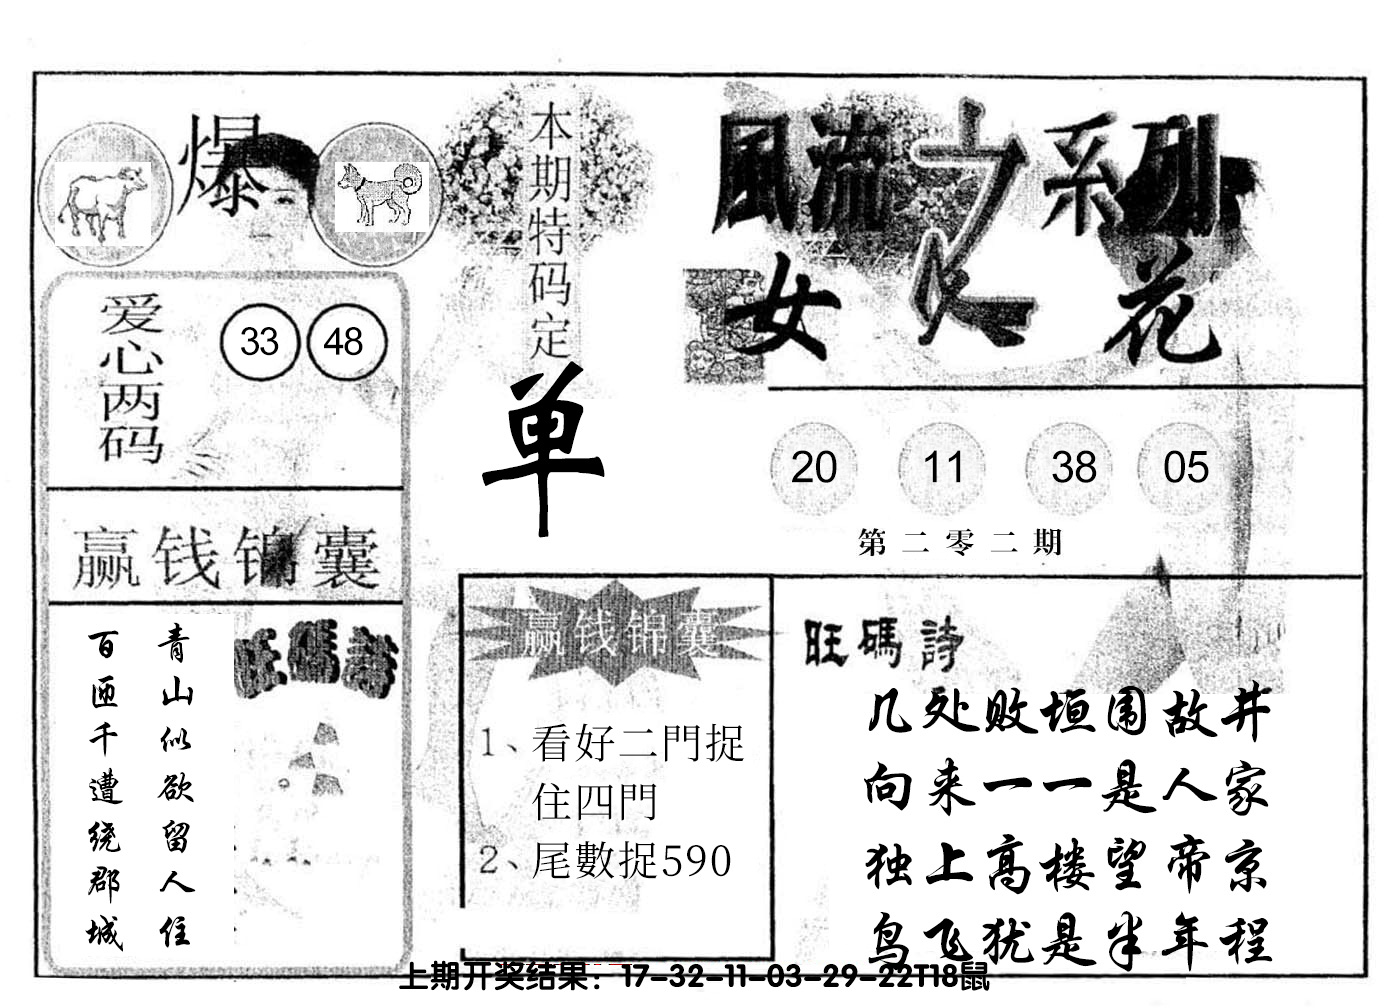 爆
本期特码定
单
風流之系列
女人花
爱心两码
33 48
20 11 38 05
第二零二期
赢钱锦囊
青山似欲留人住
百匝千遭绕郡城
旺碼詩
赢钱锦囊
1、看好二門捉
住四門
2、尾數捉590
旺碼詩
几处败垣围故井
向来一一是人家
独上高楼望帝京
鸟飞犹是半年程
上期开奖结果：17-32-11-03-29-22T18鼠